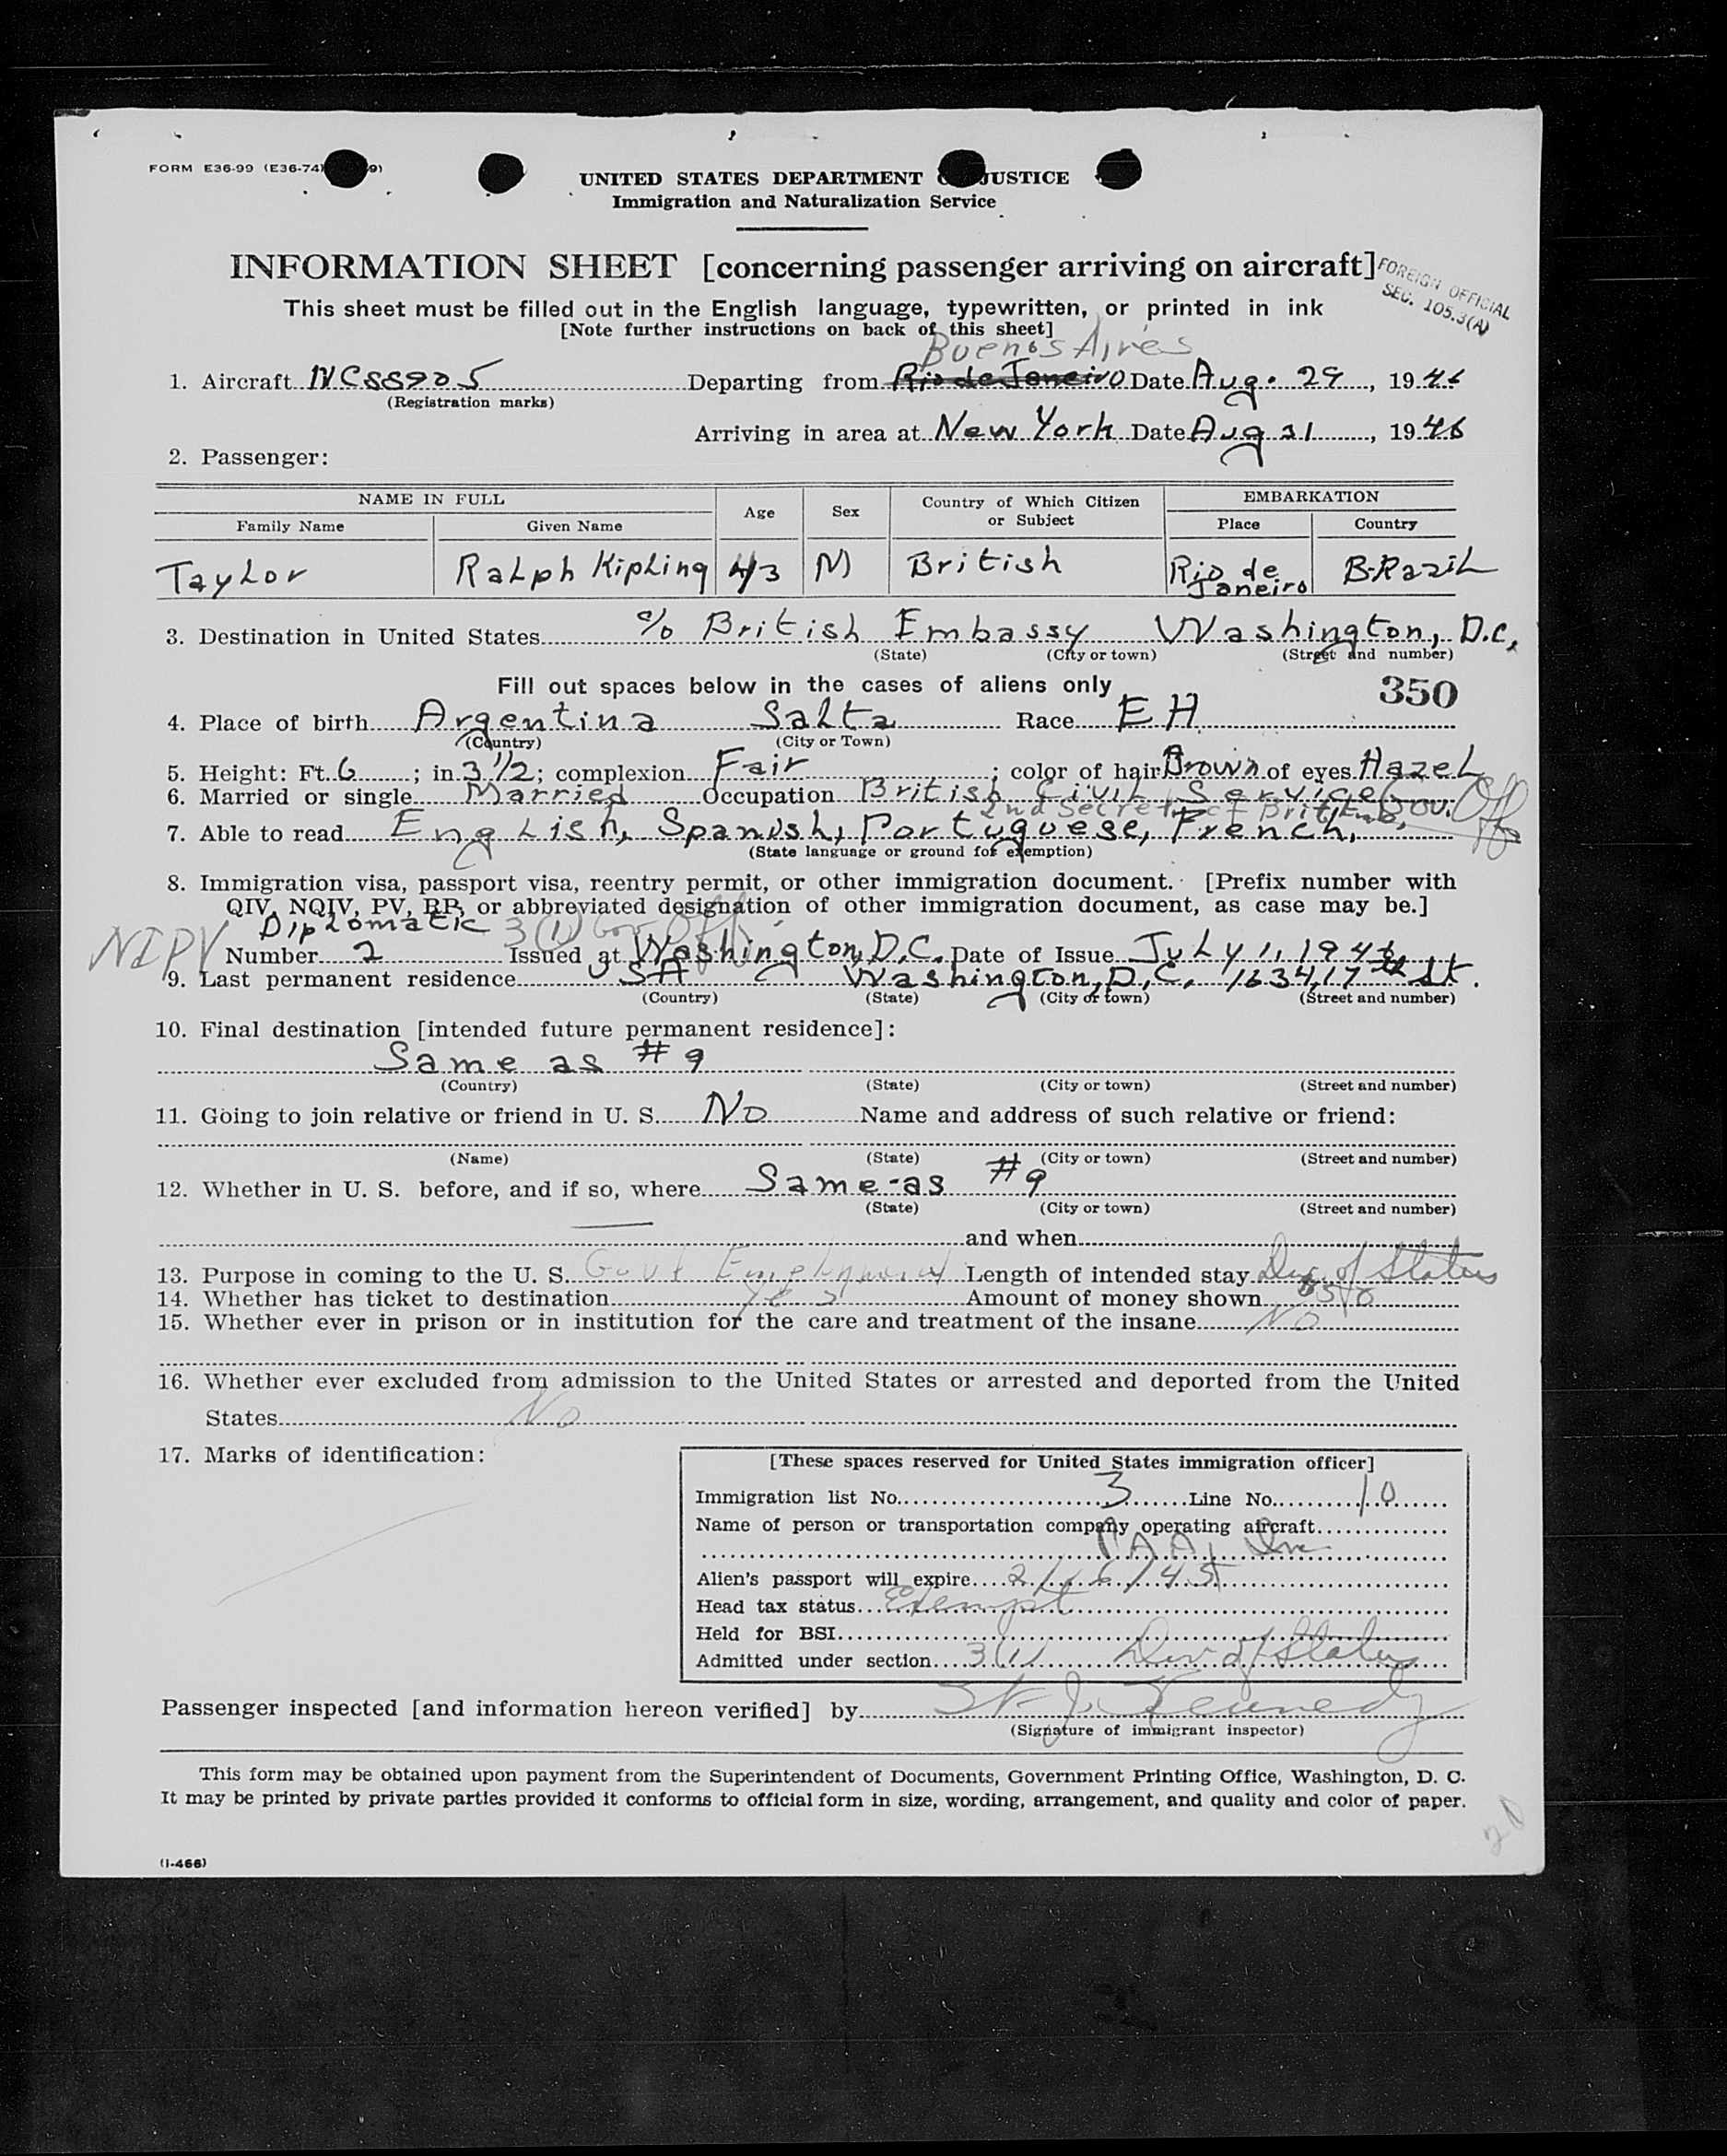 FORM E36-99 (E36-74)
UNITED STATES DEPARTMENT JUSTICE
Immigration and Naturalization Service
INFORMATION SHEET [concerning passenger arriving on aircraft]
FOREIGN OFFICIAL
SEC. 105.3(A)
This sheet must be filled out in the English language, typewritten, or printed in ink
[Note further instructions on back of this sheet]
Buenos Aires
1. Aircraft NC88905 Departing from Rio de Janeiro Date Aug. 29, 1946
(Registration marks)
Arriving in area at New York Date Aug 31, 1946
2. Passenger:
NAME IN FULL Age Sex Country of Which Citizen or Subject EMBARKATION
Family Name Given Name Place Country
Taylor Ralph Kipling 43 M British Rio de Janeiro Brazil
3. Destination in United States c/o British Embassy Washington, D.C.
(State) (City or town) (Street and number)
Fill out spaces below in the cases of aliens only
350
4. Place of birth Argentina Salta Race EH
(Country) (City or Town)
5. Height: Ft. 6; in. 3 1/2; complexion Fair; color of hair Brown of eyes Hazel
6. Married or single Married Occupation British Civil Service Gov. Off
2nd Secret of Brit Emb.
7. Able to read English, Spanish, Portuguese, French.
(State language or ground for exemption)
8. Immigration visa, passport visa, reentry permit, or other immigration document. [Prefix number with
QIV, NQIV, PV, RP, or abbreviated designation of other immigration document, as case may be.]
Diplomatic 3(1) Gov Off
NIPV Number 2 Issued at Washington, D.C. Date of Issue July 1, 1946
9. Last permanent residence USA Washington, D.C. 1634, 17th St.
(Country) (State) (City or town) (Street and number)
10. Final destination [intended future permanent residence]:
Same as #9
(Country) (State) (City or town) (Street and number)
11. Going to join relative or friend in U. S. No Name and address of such relative or friend:
(Name) (State) (City or town) (Street and number)
12. Whether in U. S. before, and if so, where Same-as #9
(State) (City or town) (Street and number)
and when
13. Purpose in coming to the U. S. Govt Employment Length of intended stay Dur. of Status
14. Whether has ticket to destination yes Amount of money shown
15. Whether ever in prison or in institution for the care and treatment of the insane No
16. Whether ever excluded from admission to the United States or arrested and deported from the United
States No
17. Marks of identification:
[These spaces reserved for United States immigration officer]
Immigration list No. 3 Line No. 10
Name of person or transportation company operating aircraft
PAA, Inc
Alien's passport will expire 2/16/45
Head tax status Exempt
Held for BSI
Admitted under section 3(1) Dur of Status
Passenger inspected [and information hereon verified] by J. Kennedy
(Signature of immigrant inspector)
This form may be obtained upon payment from the Superintendent of Documents, Government Printing Office, Washington, D. C.
It may be printed by private parties provided it conforms to official form in size, wording, arrangement, and quality and color of paper.
(I-466)